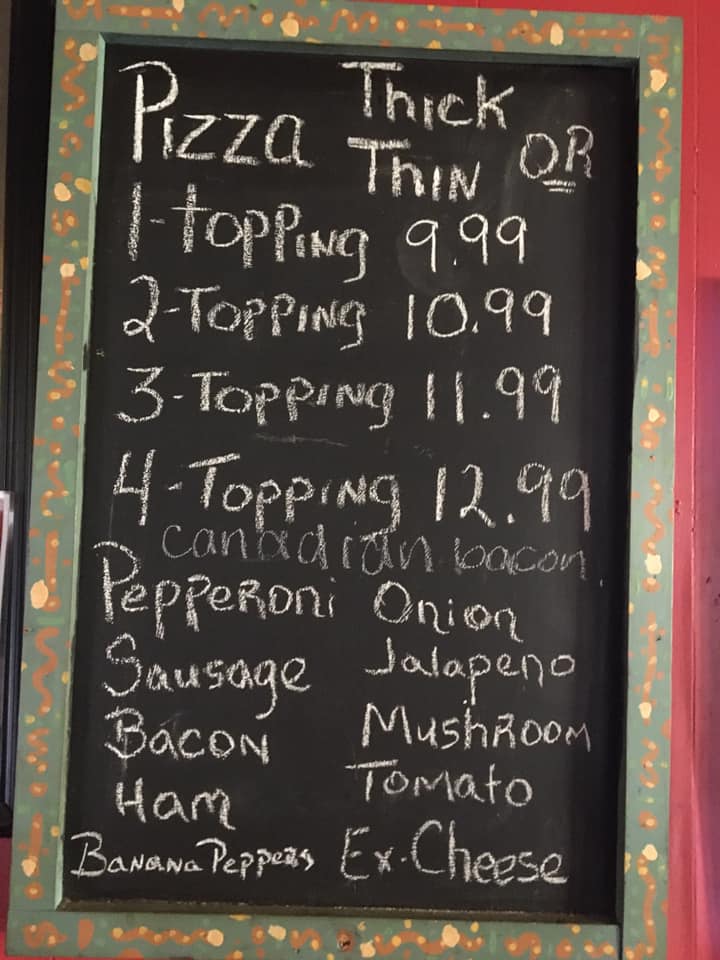 Pizza Thick OR Thin
1-Topping 9.99
2-Topping 10.99
3-Topping 11.99
4-Topping 12.99
canadian bacon
Pepperoni Onion
Sausage Jalapeno
Bacon Mushroom
Ham Tomato
Banana Peppers Ex. Cheese